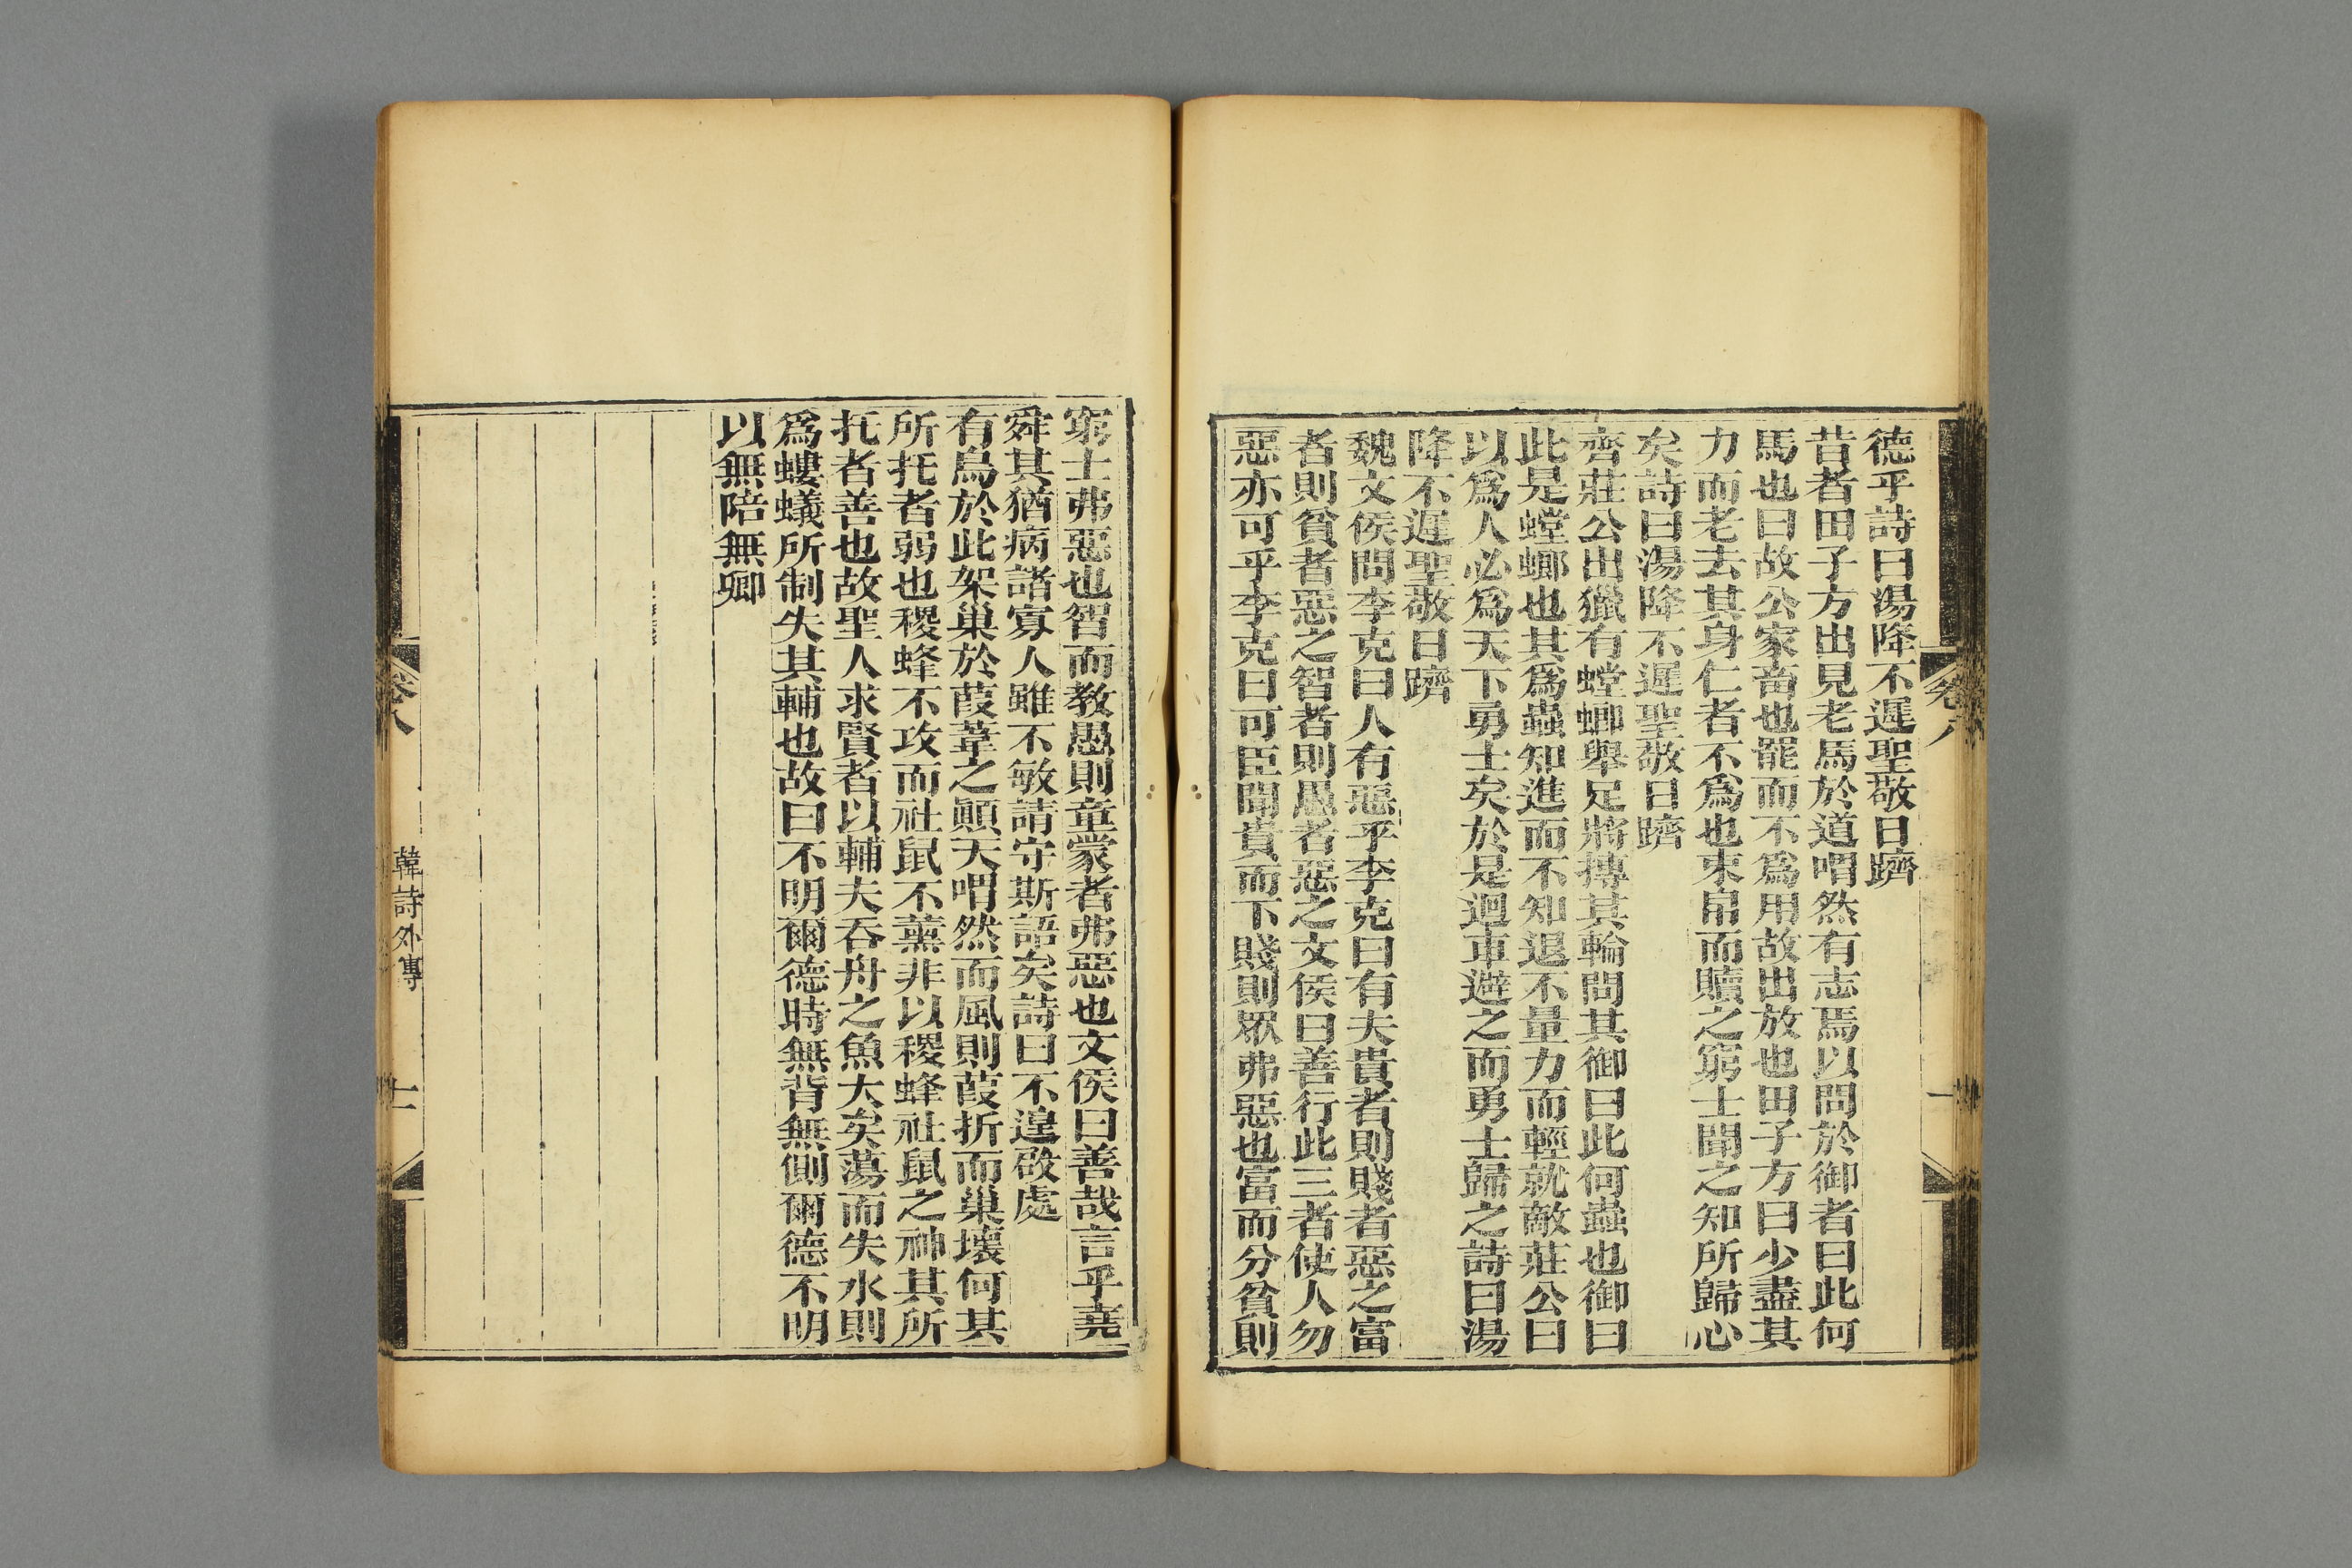 德乎詩曰湯降不遲聖敬日躋
昔者田子方出見老馬於道喟然有志焉以問於御者曰此何
馬也曰故公家畜也罷而不爲用故出放也田子方曰少盡其
力而老去其身仁者不爲也束帛而贖之窮士聞之知所歸心
矣詩曰湯降不遲聖敬日躋
齊莊公出獵有螳螂舉足將摶其輪問其御曰此何蟲也御曰
此是螳螂也其爲蟲知進而不知退不量力而輕就敵莊公曰
以爲人必爲天下勇士矣於是迴車避之而勇士歸之詩曰湯
降不遲聖敬日躋
魏文侯問李克曰人有惡乎李克曰有夫貴者則賤者惡之富
者則貧者惡之智者則愚者惡之文侯曰善行此三者使人勿
惡亦可乎李克曰可臣聞貴而下賤則眾弗惡也富而分貧則
卷八
窮士弗惡也智而教愚則童蒙者弗惡也文侯曰善哉言乎堯
舜其猶病諸寡人雖不敏請守斯語矣詩曰不遑啟處
有鳥於此架巢於葭葦之顛天喟然而風則葭折而巢壞何其
所托者弱也稷蜂不攻而社鼠不薰非以稷蜂社鼠之神其所
托者善也故聖人求賢者以輔夫吞舟之魚大矣蕩而失水則
爲螻蟻所制失其輔也故曰不明爾德時無背無側爾德不明
以無陪無卿
卷八
韓詩外傳